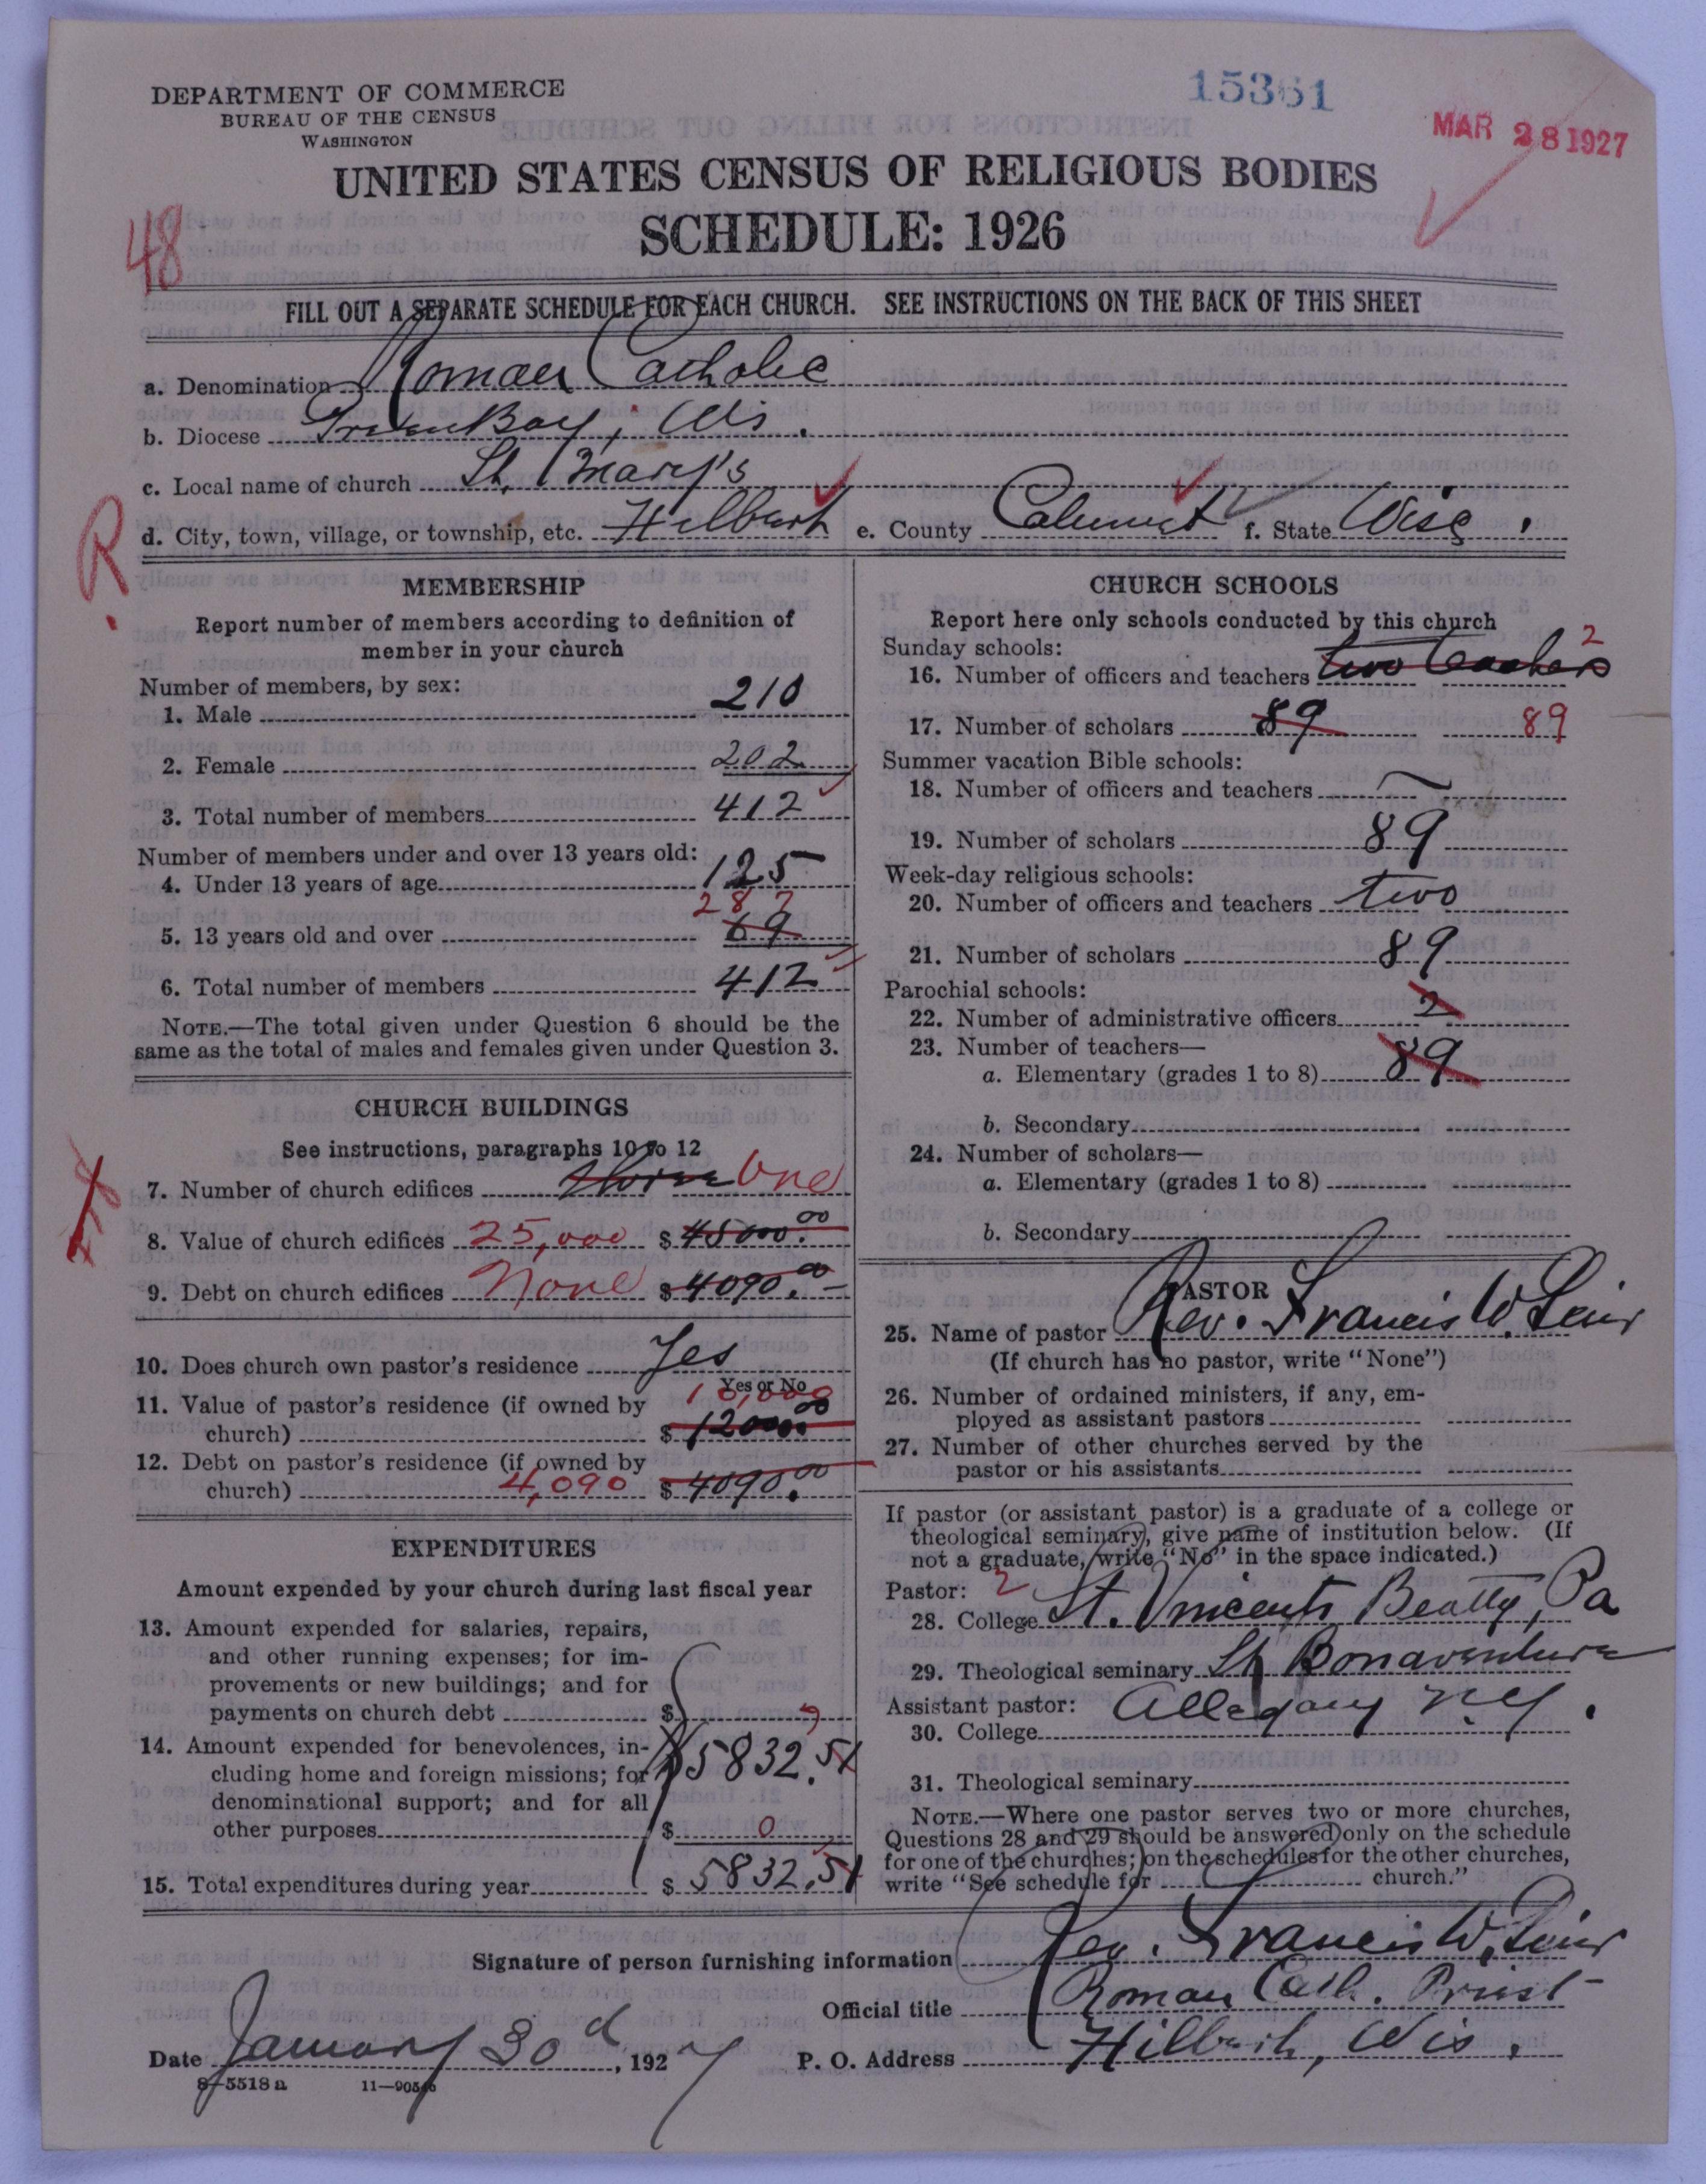 15361
DEPARTMENT OF COMMERCE
BUREAU OF THE CENSUS
WASHINGTON
MAR 28 1927
UNITED STATES CENSUS OF RELIGIOUS BODIES
SCHEDULE: 1926
48
FILL OUT A SEPARATE SCHEDULE FOR EACH CHURCH. SEE INSTRUCTIONS ON THE BACK OF THIS SHEET
a. Denomination Roman Catholic
b. Diocese Green Bay, Wis.
c. Local name of church St. Mary's
R.
d. City, town, village, or township, etc. Hilbert e. County Calumet f. State Wisc.
MEMBERSHIP
Report number of members according to definition of
member in your church
Number of members, by sex:
1. Male 210
2. Female 202
3. Total number of members 412
Number of members under and over 13 years old:
4. Under 13 years of age 125
287
5. 13 years old and over 69
6. Total number of members 412
NOTE.—The total given under Question 6 should be the
same as the total of males and females given under Question 3.
CHURCH BUILDINGS
See instructions, paragraphs 10 to 12
7. Number of church edifices three One
8. Value of church edifices 25,000 $ 45000.00
9. Debt on church edifices None $ 4090.00
10. Does church own pastor's residence Yes
Yes or No
10,000
11. Value of pastor's residence (if owned by
church) $ 12000.00
12. Debt on pastor's residence (if owned by
church) 4,090 $ 4090.00
EXPENDITURES
Amount expended by your church during last fiscal year
13. Amount expended for salaries, repairs,
and other running expenses; for im-
provements or new buildings; and for
payments on church debt $
14. Amount expended for benevolences, in-
cluding home and foreign missions; for $5832.51
denominational support; and for all
other purposes $ 0
15. Total expenditures during year $ 5832.51
CHURCH SCHOOLS
Report here only schools conducted by this church
Sunday schools: 2
16. Number of officers and teachers two teachers
17. Number of scholars 89 89
Summer vacation Bible schools:
18. Number of officers and teachers
19. Number of scholars 89
Week-day religious schools:
20. Number of officers and teachers two
21. Number of scholars 89
Parochial schools:
22. Number of administrative officers 2
23. Number of teachers—
a. Elementary (grades 1 to 8) 89
b. Secondary
24. Number of scholars—
a. Elementary (grades 1 to 8)
b. Secondary
PASTOR
25. Name of pastor Rev. Francis W.
(If church has no pastor, write "None")
26. Number of ordained ministers, if any, em-
ployed as assistant pastors
27. Number of other churches served by the
pastor or his assistants
If pastor (or assistant pastor) is a graduate of a college or
theological seminary, give name of institution below. (If
not a graduate, write "No" in the space indicated.)
Pastor: 2
28. College St. Vincents Beatty, Pa
29. Theological seminary St Bonaventure
Assistant pastor: Allegany N.Y.
30. College
31. Theological seminary
NOTE.—Where one pastor serves two or more churches,
Questions 28 and 29 should be answered only on the schedule
for one of the churches; on the schedules for the other churches,
write "See schedule for church."
Signature of person furnishing information Rev. Francis W.
Official title Roman Cath. Priest
Date January 30d, 1927 P. O. Address Hilbert, Wis.
8-5518a 11—90546